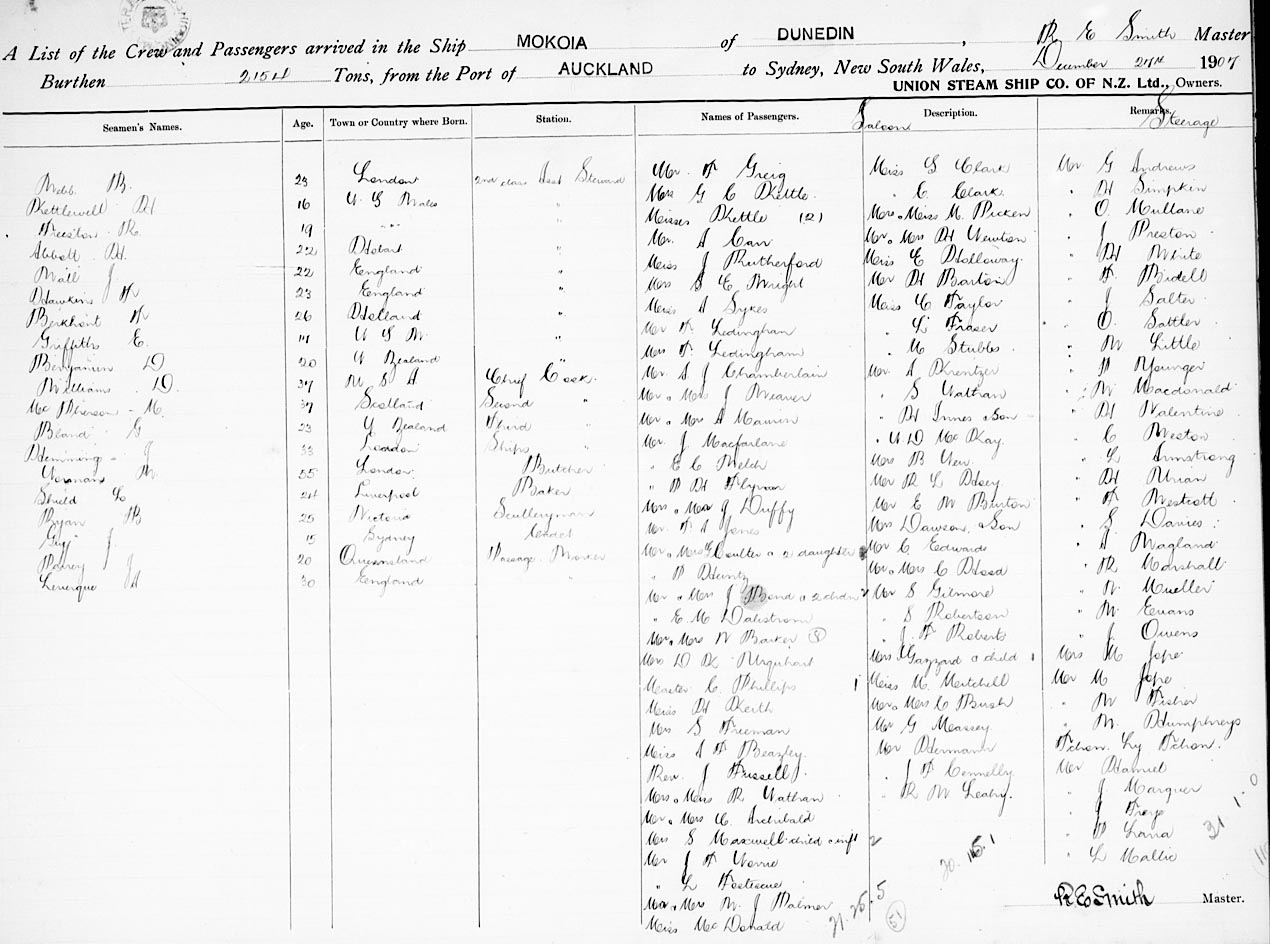 A List of the Crew and Passengers arrived in the Ship MOKOIA of DUNEDIN, R E Smith Master
Burthen 2154 Tons, from the Port of AUCKLAND to Sydney, New South Wales, December 24th 1907
UNION STEAM SHIP CO. OF N.Z. Ltd., Owners.
Seamen's Names. Age. Town or Country where Born. Station. Names of Passengers. Saloon Description. Remarks. Steerage
Webb B. 23 London 2nd class Asst Steward
Kettlewell H 16 N S Wales "
Preston R. 19 " "
Abbott H. 22 Hobart "
Wall J 22 England "
Hawkins 23 England "
Berkhout 26 Holland "
Griffiths E. N S W "
Benjamin D 20 N Zealand "
Williams D. 37 U S A Chief Cook.
Mc Pherson M. 37 Scotland Second "
Bland G 23 N Zealand Third "
Hemming J 33 London Ships "
Norman W. 55 London Butcher
Shield C 24 Liverpool Baker
Ryan B 25 Victoria Sculleryman
Guy J. 15 Sydney Cadet
Parry J 20 Queensland Passage Worker
Leverque H 30 England "
Mr. F Greig
Mrs G C Kettle
Misses Kettle (2)
Mr. A Carr
Miss J Rutherford
Mrs S E Wright
Miss A Sykes
Mr F Ledingham
Mrs F Ledingham
Mr. A J Chamberlain
Mr & Mrs J Weaver
Mr & Mrs A Mawin
Mr. J. Macfarlane
" E C Welch
" P H Flynn
Mrs & Mr J Duffy
Mr. F A Jones
Mr & Mrs Coulter & 2 daughter
" P Huntz
Mr & Mrs J Bond & 2 chdn
" E. M Dahlstrom
Mr & Mrs W Barker
Mrs D K Urquhart
Master C. Phillips 1
Miss H Keith
Mrs S Freeman
Miss A F Beazley
Rev. J Fussell
Mrs & Miss R Nathan
Mr & Mrs C. Archibald
Mrs S Maxwell child & inft 2
Mr J F Norrie
" L Fortescue
Mr & Mrs W. J Palmer
Miss Mc Donald
Miss S Clark
" C Clark
Mrs & Miss M. Picken
Mr & Mrs H Newton
Miss E Holloway
Mr H Barton
Miss C Taylor
" L Fraser
" M Stubbs
Mr. A Krentzer
" S Nathan
" H Innes & Son
" N D Mc Kay.
Mrs B New.
Mr R L Disey
Mr E M Burton
Mrs Dawson & Son
Mr C Edwards
Mr & Mrs C Hood
Mr S Gilmore
" S Robertson
" J. F Roberts
Mrs Gazzard & child 1
Miss M. Mitchell
Mr & Mrs C Bush
Mr G Massey
Mr Hermann
" J F Connelly
" R M Leahy.
Mr G Andrews
" H Simpkin
" O. Mullane
" J Preston
" H White
" F Bidell
" J Salter
" O. Sattler
" W Little
" P Younger
" W Macdonald
" H Valentine
" C Weston
" L Armstrong
" H Urian
" F Westcott
" S Davies
" A Magland
" R Marshall
" W Mueller
" W. Evans
" J Owens
Mrs M Jope
Mr M Jope
" W Fisher
" W. Humphreys
Fchon Ly Fchon.
Mr Hamiel
" J. Marquer
" J Fraye
" P Lana
" L Mallic
51
R E Smith Master.